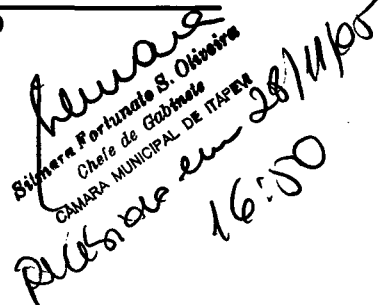 Silmara
Silmara Fortunato S. Oliveira
Chefe de Gabinete
CÂMARA MUNICIPAL DE ITAPEVI
em 28/11/00
16:00